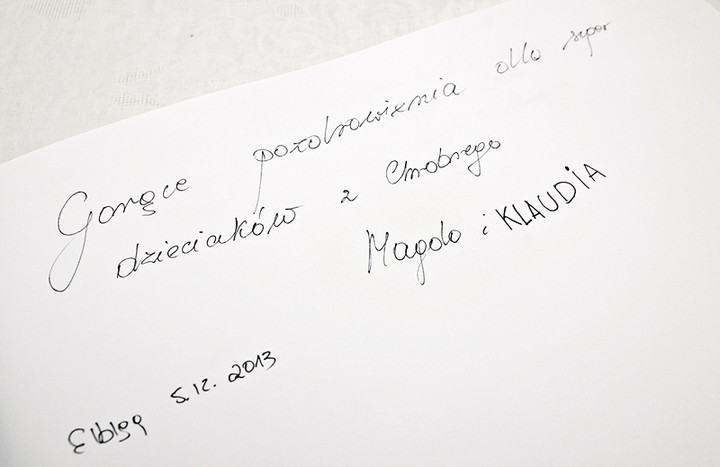 Gorące pozdrowienia dla super
dzieciaków z Chrobrego
Magda i KLAUDIA
Elbląg 5.12.2013